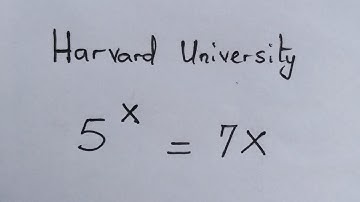 Harvard University
5^x = 7x